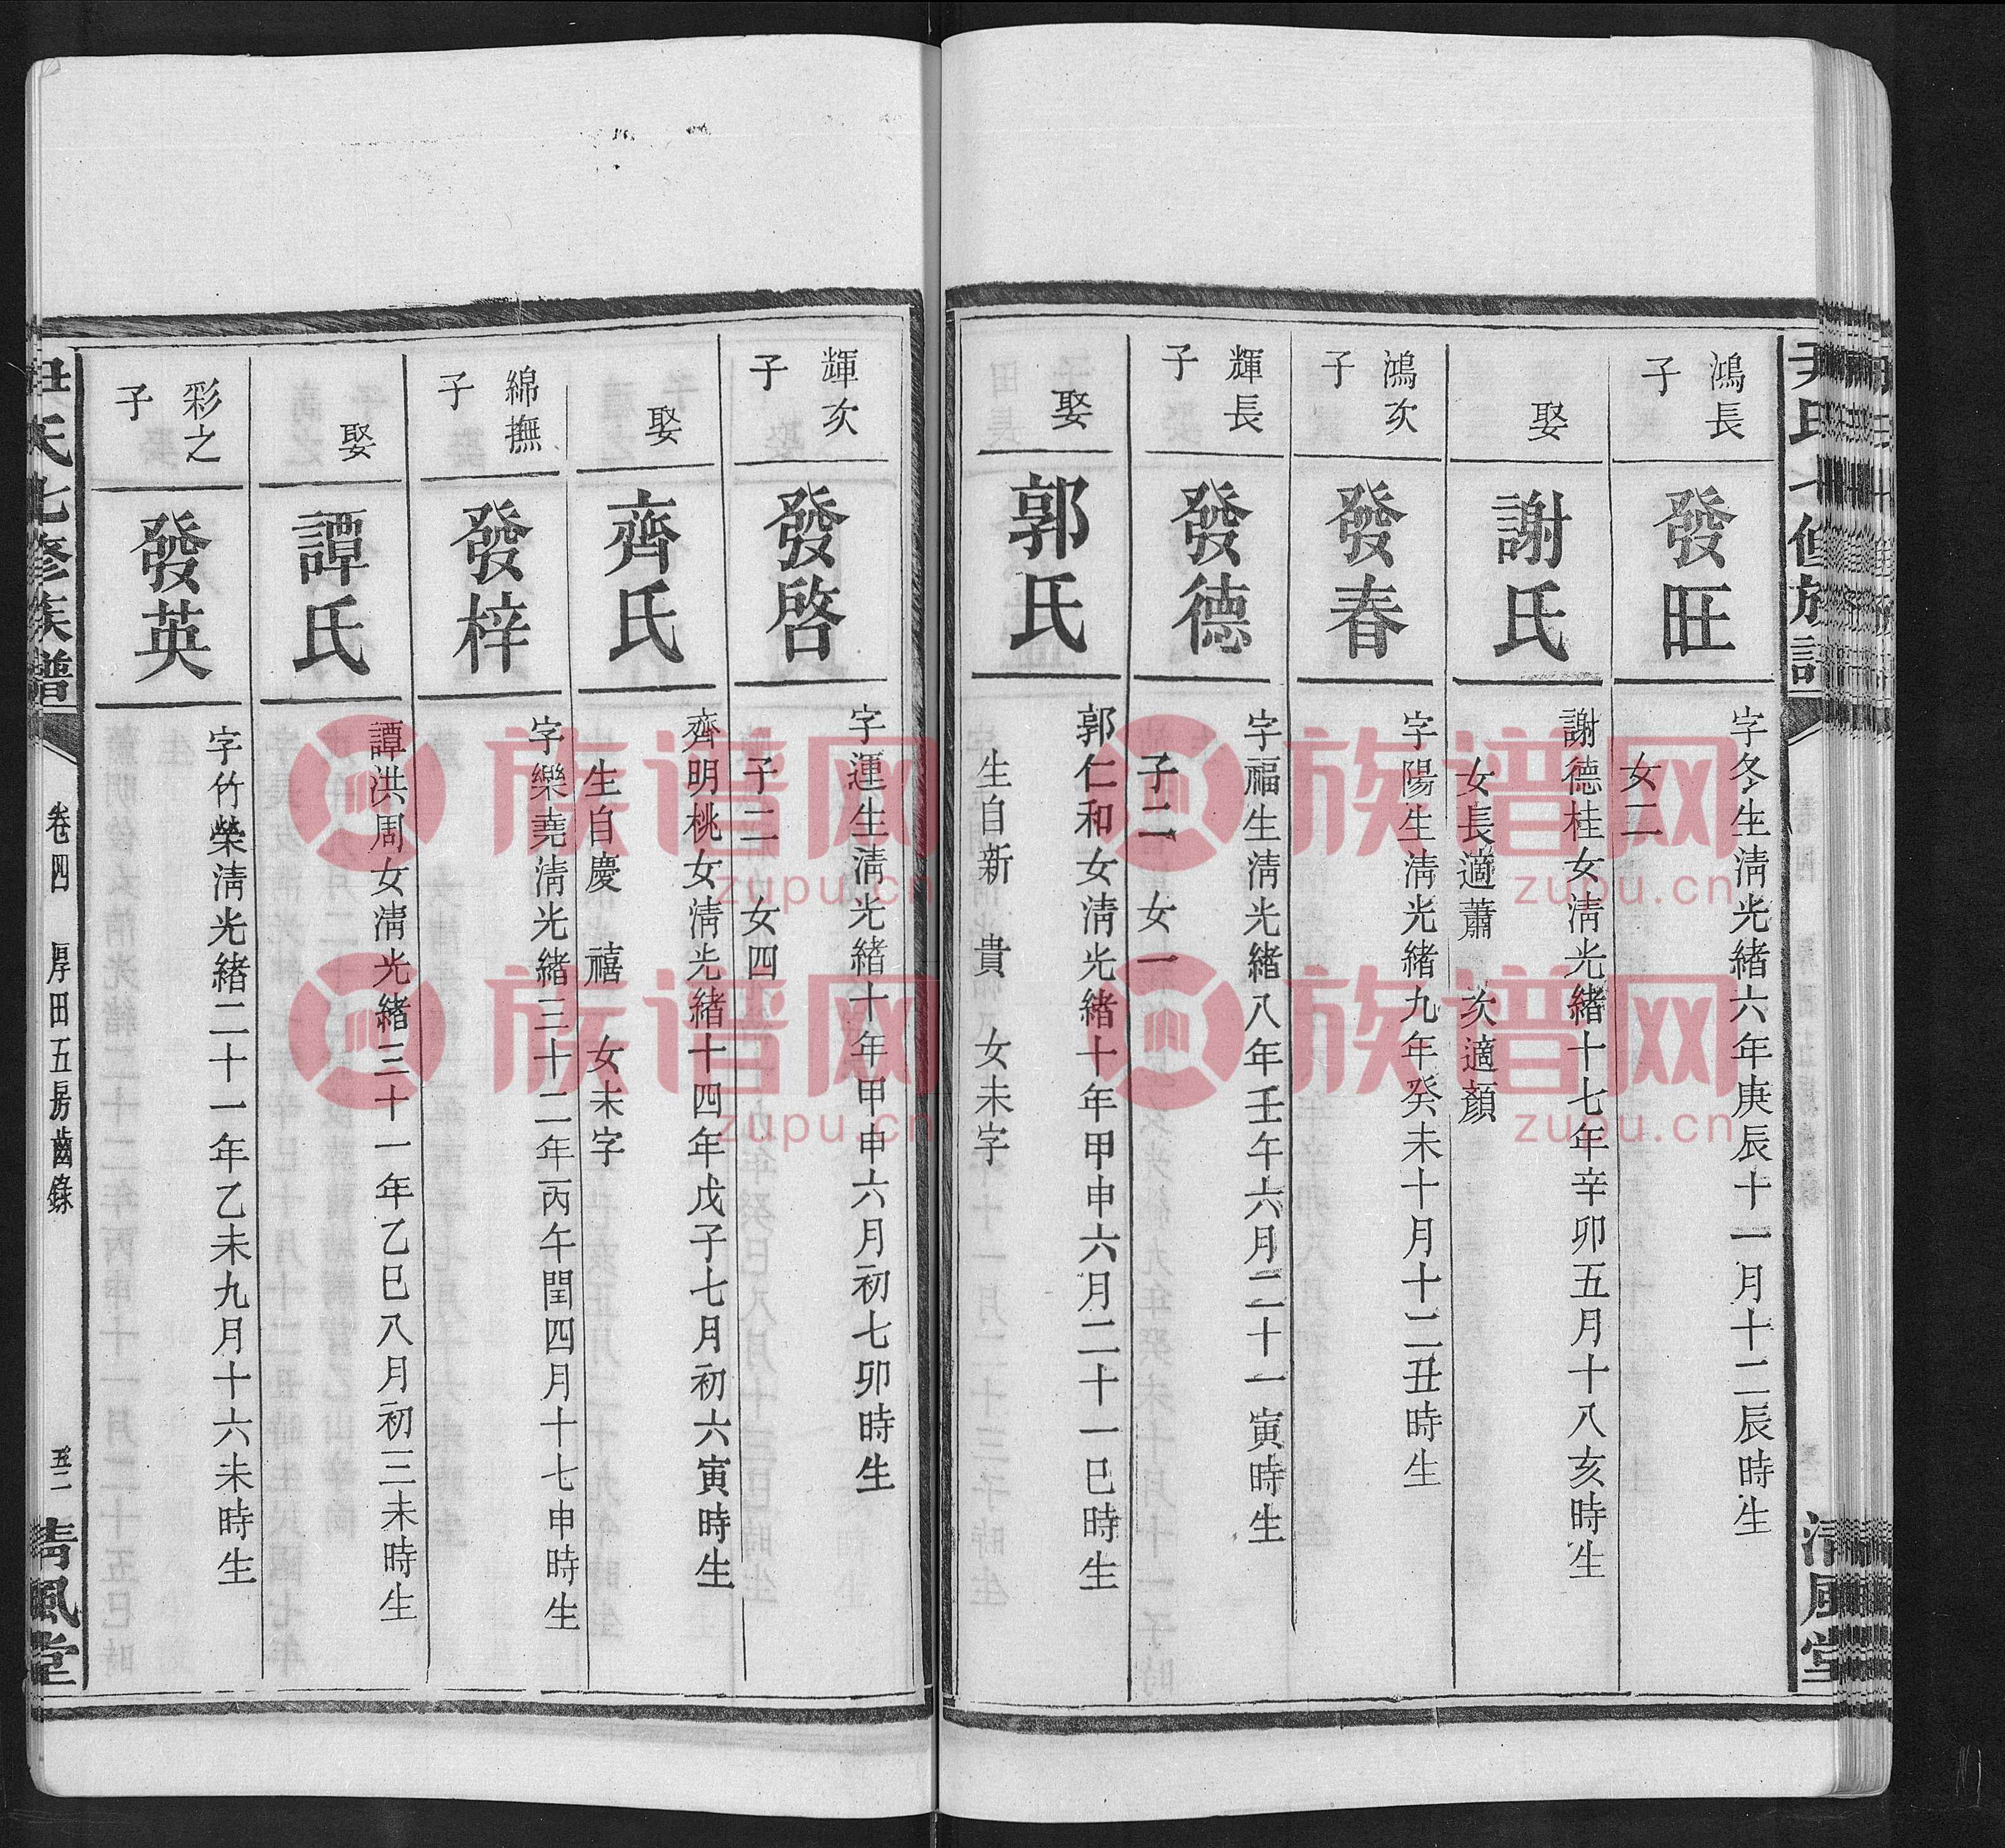 鴻長子
發旺
字冬生淸光緒六年庚辰十一月十二辰時生
女二
娶
謝氏
謝德桂女淸光緒十七年辛卯五月十八亥時生
女長適蕭 次適顏
鴻次子
發春
字陽生淸光緒九年癸未十月十二丑時生
輝長子
發德
字福生淸光緒八年壬午六月二十一寅時生
子二 女一
娶
郭氏
郭仁和女淸光緒十年甲申六月二十一巳時生
生自新 貴 女未字
輝次子
發啓
字運生淸光緒十年甲申六月初七卯時生
子二 女四
娶
齊氏
齊明桃女淸光緒十四年戊子七月初六寅時生
生自慶 禧 女未字
綿撫子
發梓
字樂堯淸光緒三十二年丙午閏四月十七申時生
娶
譚氏
譚洪周女淸光緒三十一年乙巳八月初三未時生
彩之子
發英
字竹榮淸光緒二十一年乙未九月十六未時生
尹氏七修族譜
卷四 厚田五房齒錄
五二
清風堂
族谱网
zupu.cn
族谱网
zupu.cn
族谱网
zupu.cn
族谱网
zupu.cn